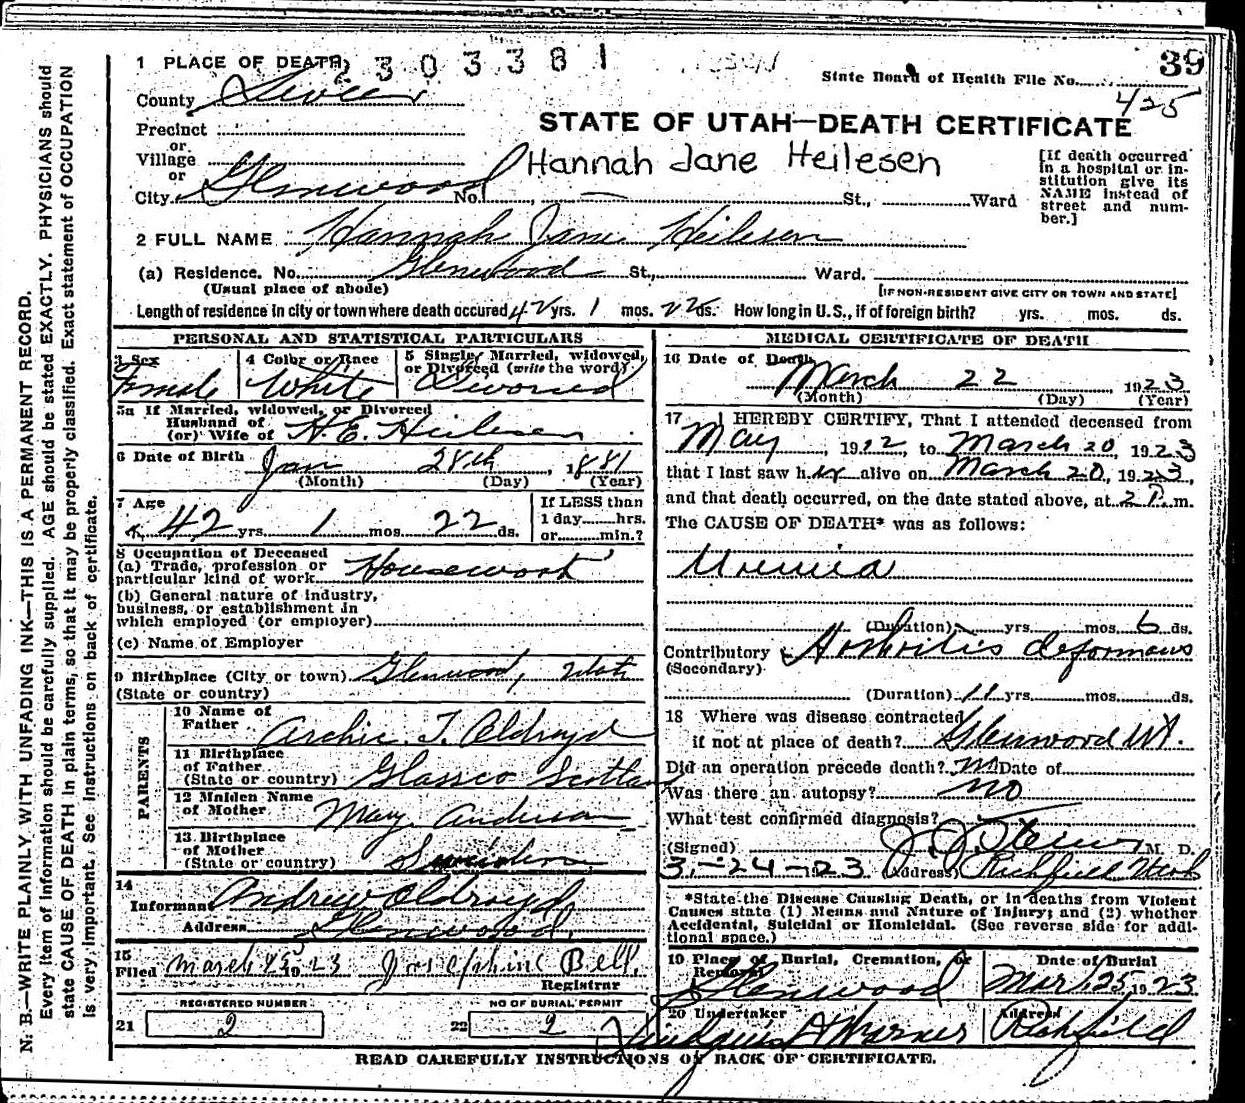 39
1 PLACE OF DEATH 2303381
State Board of Health File No. 425
County Sevier
STATE OF UTAH—DEATH CERTIFICATE
Precinct
or
Village
or
City Glenwood No. St., Ward
Hannah Jane Heilesen
[If death occurred in a hospital or institution give its NAME instead of street and number.]
2 FULL NAME Hannah Jane Heilesen
(a) Residence. No. Glenwood St., Ward.
(Usual place of abode)
[IF NON-RESIDENT GIVE CITY OR TOWN AND STATE]
Length of residence in city or town where death occured 42 yrs. 1 mos. 22 ds. How long in U.S., if of foreign birth? yrs. mos. ds.
PERSONAL AND STATISTICAL PARTICULARS
3 Sex Female
4 Color or Race White
5 Single, Married, widowed, or Divorced (write the word) Divorced
5a If Married, widowed, or Divorced
Husband of
(or) Wife of H. E. Heilesen
6 Date of Birth Jan 28th, 1881
(Month) (Day) (Year)
7 Age 42 yrs. 1 mos. 22 ds.
If LESS than
1 day hrs.
or min.?
8 Occupation of Deceased
(a) Trade, profession or
particular kind of work Housework
(b) General nature of industry,
business, or establishment in
which employed (or employer)
(c) Name of Employer
9 Birthplace (City or town) Glenwood, Utah
(State or country)
PARENTS
10 Name of
Father Archie T. Oldroyd
11 Birthplace
of Father
(State or country) Glassco Scotland
12 Maiden Name
of Mother Mary Anderson
13 Birthplace
of Mother
(State or country)
14
Informant Andrew Oldroyd
Address Glenwood
15
Filed March 25 1923 Josephine Bell
Registrar
REGISTERED NUMBER
21 2
NO OF BURIAL PERMIT
22 2
MEDICAL CERTIFICATE OF DEATH
16 Date of Death
March 22 1923
(Month) (Day) (Year)
17 I HEREBY CERTIFY, That I attended deceased from
May, 1912, to March 20, 1923
that I last saw her alive on March 20, 1923,
and that death occurred, on the date stated above, at 2 P. m.
The CAUSE OF DEATH* was as follows:
Uremia
(Duration) yrs. mos. 6 ds.
Contributory Arthritis deformans
(Secondary)
(Duration) 11 yrs. mos. ds.
18 Where was disease contracted
if not at place of death? Glenwood Ut.
Did an operation precede death? no Date of
Was there an autopsy? no
What test confirmed diagnosis?
(Signed) M. D.
3-24-23 (Address) Richfield Utah
*State the Disease Causing Death, or in deaths from Violent Causes state (1) Means and Nature of Injury; and (2) whether Accidental, Suicidal or Homicidal. (See reverse side for additional space.)
19 Place of Burial, Cremation, or
Removal Glenwood
Date of Burial
Mar 25 1923
20 Undertaker
A Warner
Address
Richfield
READ CAREFULLY INSTRUCTIONS ON BACK OF CERTIFICATE.
N. B.—WRITE PLAINLY WITH UNFADING INK—THIS IS A PERMANENT RECORD.
Every item of information should be carefully supplied. AGE should be stated EXACTLY. PHYSICIANS should
state CAUSE OF DEATH in plain terms, so that it may be properly classified. Exact statement of OCCUPATION
is very important. See instructions on back of certificate.